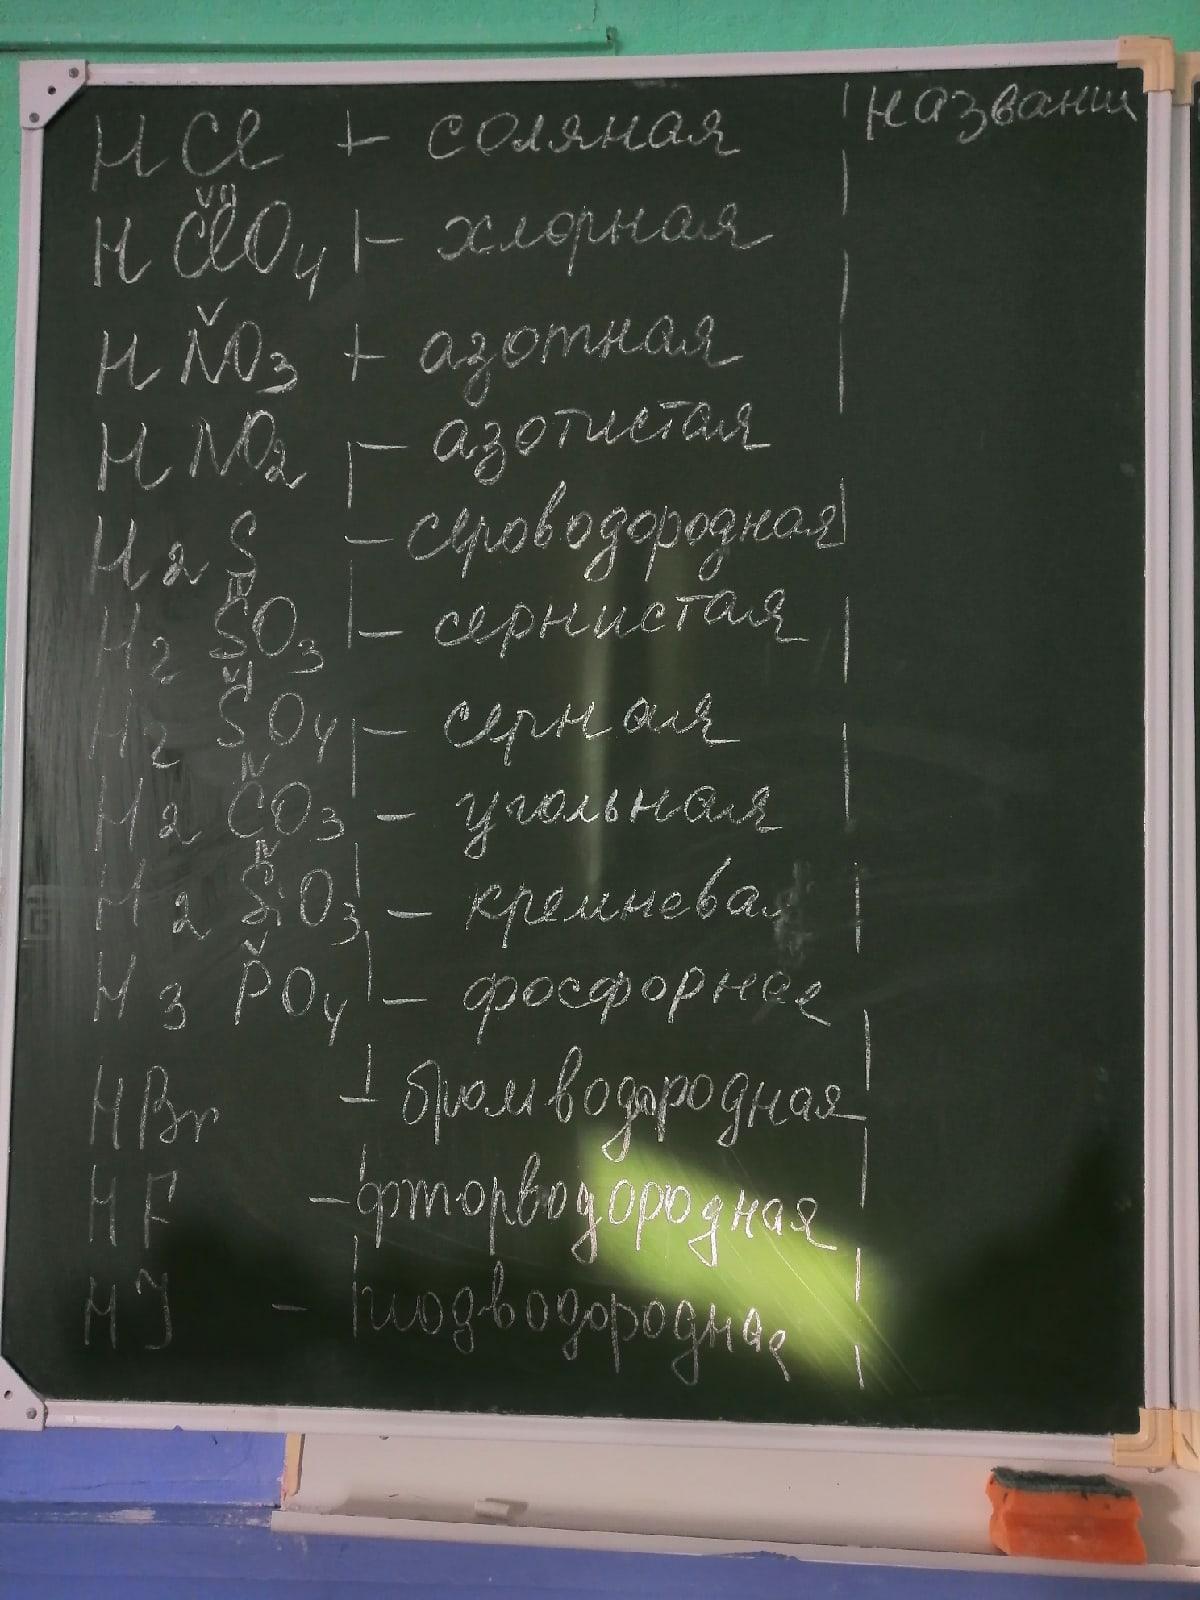 HCl – соляная названи
VII
HClO4 – хлорная
V
HNO3 – азотная
HNO2 – азотистая
H2S – сероводородная
IV
H2SO3 – сернистая
VI
H2SO4 – серная
IV
H2CO3 – угольная
IV
H2SiO3 – кремневая
V
H3PO4 – фосфорная
HBr – бромводородная
HF – фторводородная
HJ – иодводородная